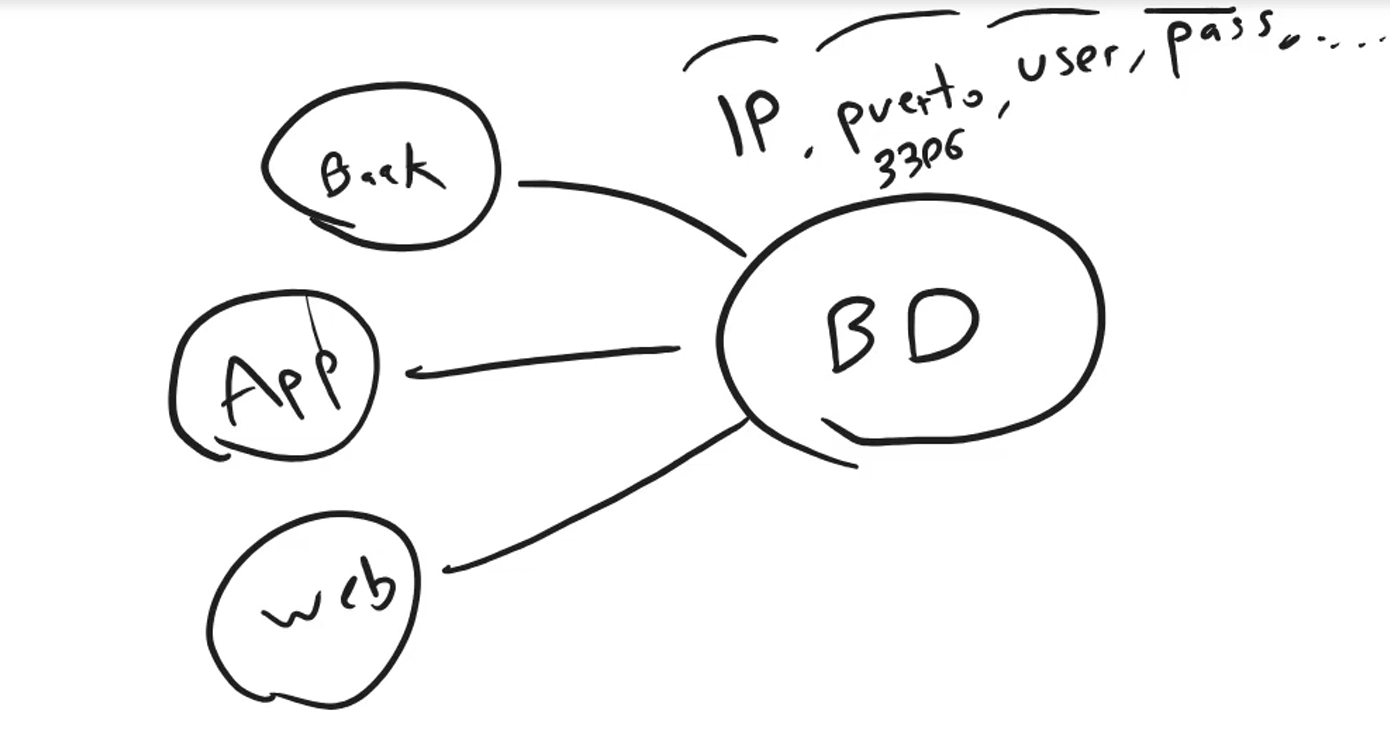 IP, puerto, user, pass, .....
3306
Back
BD
App
web